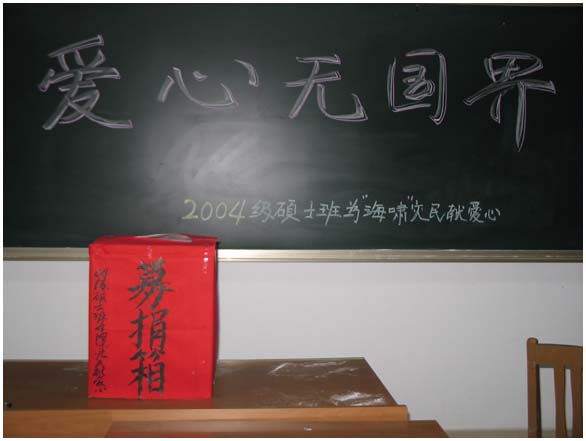 爱心无国界
2004级硕士班为"海啸"灾民献爱心
募捐箱